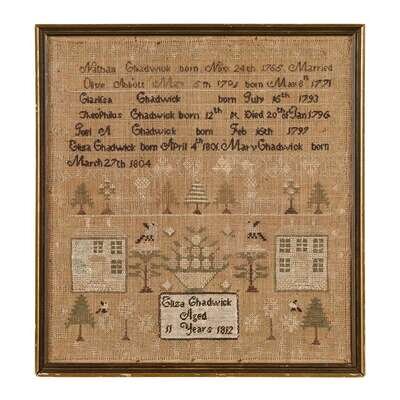 Nathan Chadwick born Nov 24th 1765 Married
Olive Abbott May 5th born May 8th 1771
Clarissa Chadwick born July 16th 1793
Theophilus Chadwick born 12th & Died 20th of Jan 1796
Joel A Chadwick born Feb 16th 1797
Eliza Chadwick born April 4th 1801 Mary Chadwick born
March 27th 1804
Eliza Chadwick
Aged
11 Years 1812